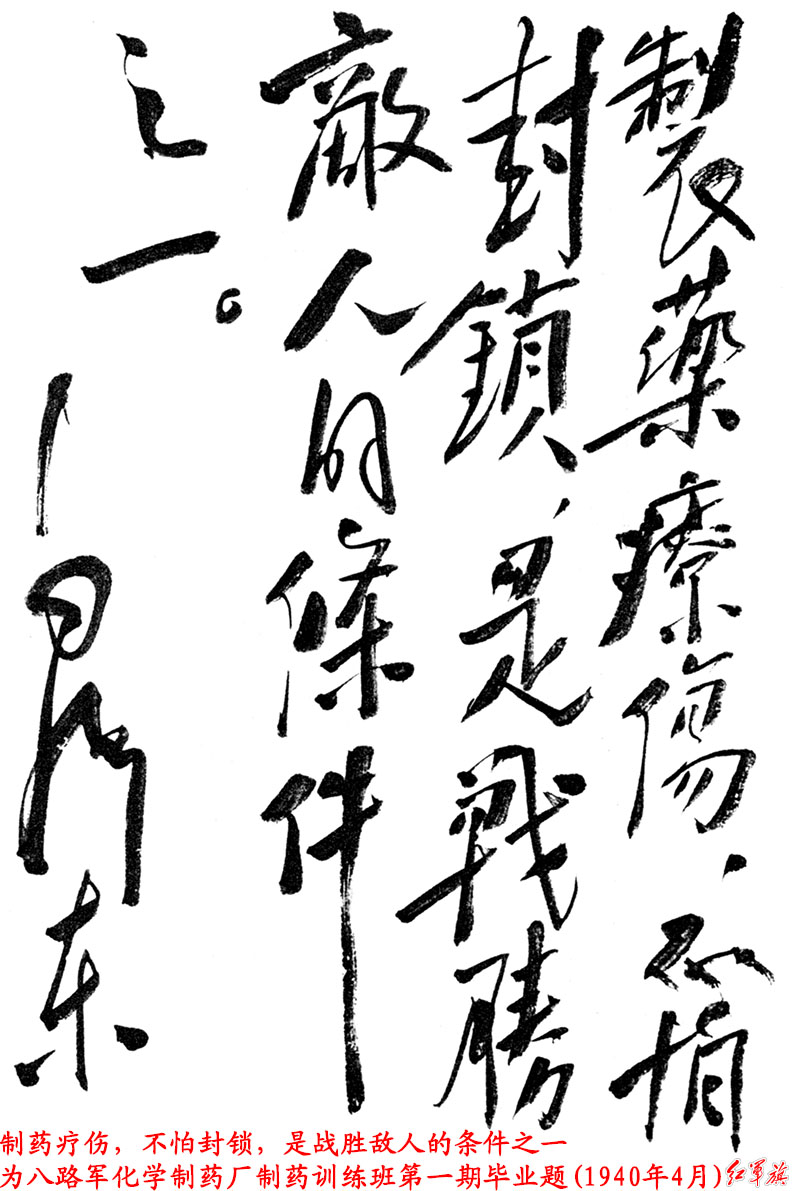 製藥療傷、不怕
封鎖、是戰勝
敵人的條件
之一。
—毛澤東
制药疗伤，不怕封锁，是战胜敌人的条件之一
为八路军化学制药厂制药训练班第一期毕业题(1940年4月)红军旗